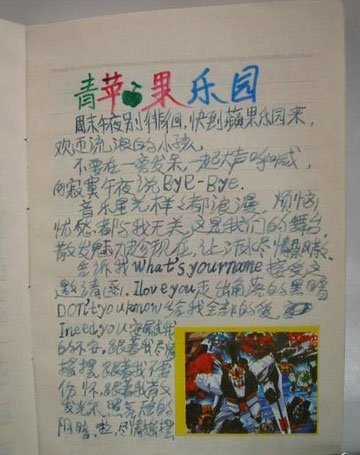 青苹果乐园
周末午夜别徘徊,快到蘋果乐园来,
欢迎流浪的小孩,
不要在一旁发呆,一起大声呼喊,
向寂寞午夜说Bye-Bye.
音乐星光样样都浪漫,烦恼
忧愁都与我无关,这是我们的舞台
散发魅力趁现在,让
告诉我What's your name 接受这
邀请函.I love you走出角落的黑暗
DON't you know 给我全部的爱
I need you 我
的不安,跟着我尽情
摇摆,跟着我不要
伤怀,跟着我散
发光 的
阴暗 啦,尽情摇摆